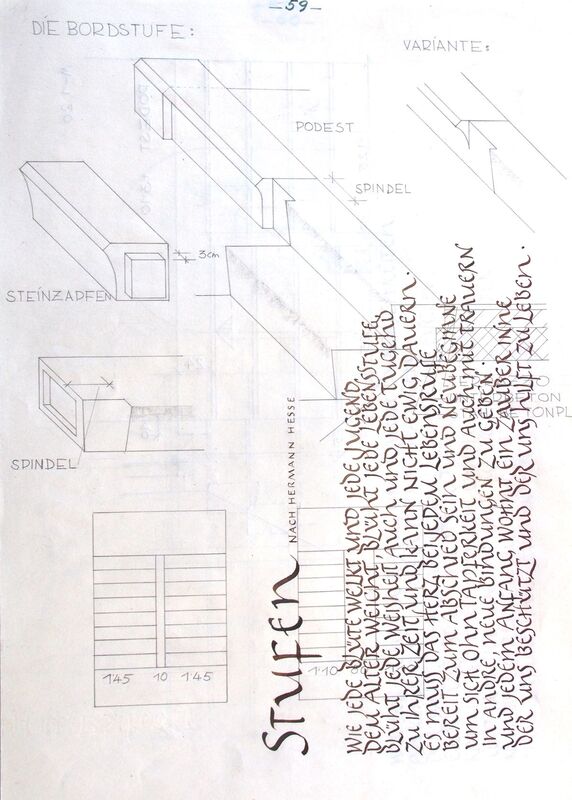 — 59 —
DIE BORDSTUFE:
VARIANTE:
PODEST
SPINDEL
3cm
STEINZAPFEN
SPINDEL
1'45 10 1'45
1'10
Stufen
NACH HERMANN HESSE
WIE JEDE BLÜTE WELKT UND JEDE JUGEND
DEM ALTER WEICHT, BLÜHT JEDE LEBENSTUFE,
BLÜHT JEDE WEISHEIT AUCH UND JEDE TUGEND
ZU IHRER ZEIT UND KANN NICHT EWIG DAUERN.
ES MUSS DAS HERZ BEI JEDEM LEBENSRUFE
BEREIT ZUM ABSCHIED SEIN UND NEUBEGINNE
UM SICH OHN TAPFERKEIT UND AUCH MIT TRAUERN
IN ANDRE, NEUE BINDUNGEN ZU GEBEN.
UND JEDEM ANFANG WOHNT EIN ZAUBER INNE
DER UNS BESCHÜTZT UND DER UNS HILFT ZU LEBEN.